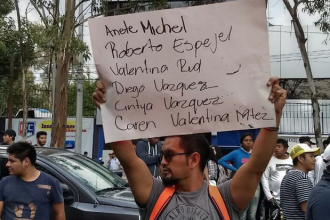 Anete Michel
Roberto Espejel
Valentina Rud
Diego Vazquez
Cintya Vazquez
Caren Valentina Mtez